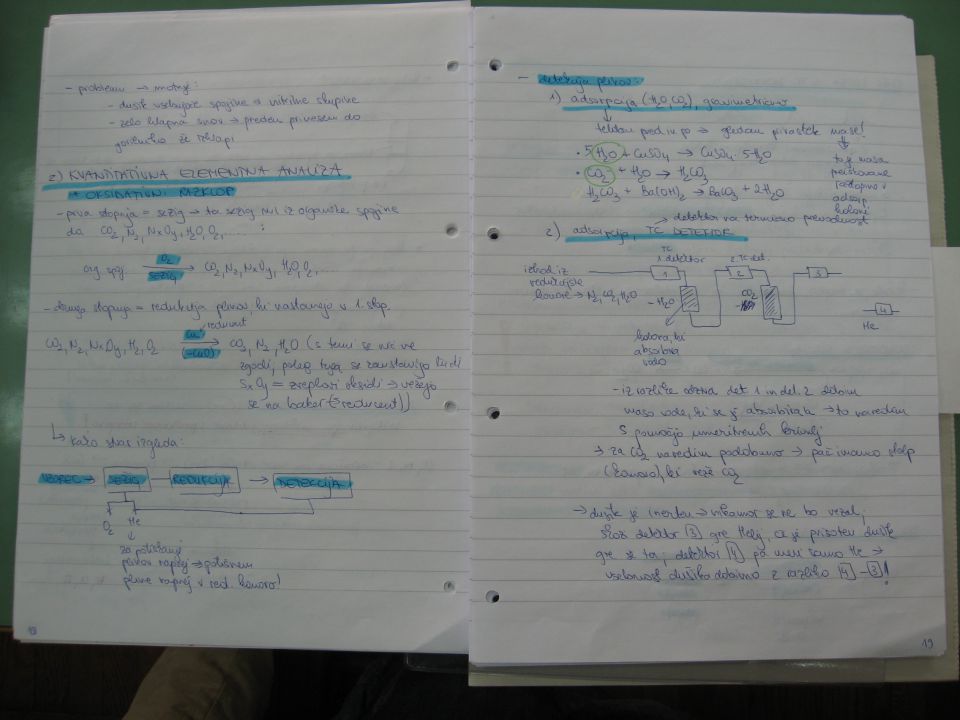 - problemi → motnje:
- dušik vsebujoče spojine → nitrilne skupine
- zelo hlapna snov → preden prinesem do
gorilnika že izhlapi
2) KVANTITATIVNA ELEMENTNA ANALIZA
+ OKSIDATIVNI RAZKLOP
- prva stopnja = sežig → ta sežig nul iz organske spojine
da CO2, N2, NxOy, H2O, O2, ....
org. spoj. O2 SEŽIG → CO2, N2, NxOy, H2O, O2, ...
- druga stopnja = redukcija plinov, ki nastanejo v 1. stop.
Cu reducent
CO2, N2, NxOy, H2, O2 (-CuO) → CO2, N2, H2O (s temi se nič ne
zgodi, poleg tega se zaustavijo tudi
SxOy = žveplovi oksidi → vežejo
se na baker (= reducent))
↳ kako stvar izgleda:
VZOREC → SEŽIG — REDUKCIJA → DETEKCIJA
O2 He
za potiskanje
plinov naprej → potisnem
pline naprej v red. kolono!
18
- detekcija plinov:
1) adsorpcija (H2O, CO2), gravimetrično
tehtam pred in po → gledam prirastek mase!
• 5H2O + CuSO4 → CuSO4 · 5H2O
• CO2 + H2O → H2CO3
H2CO3 + Ba(OH)2 → BaCO3 + 2H2O
→ detektor na termično prevodnost
2) adsorpcija, TC DETEKTOR
TC
1. detektor
2. TC det.
izhod iz
redukcijske
kolone → N2, CO2, H2O
1
2
3
4
-H2O
CO2
He
kolona, ki
absorbira
vodo
- iz razlike odziva det. 1 in det. 2 dobim
maso vode, ki se je absorbirala → to naredim
s pomočjo umeritvenih krivulj
→ za CO2 naredim podobno → pač imamo stolp
(kolono), ki veže CO2
→ dušik je inerten → nikamor se ne bo vezal;
skoz detektor 3 gre helij, če je prisoten dušik
gre še ta; detektor 4 pa meri samo He →
vsebnost dušika dobimo z razliko 4 - 3!
19